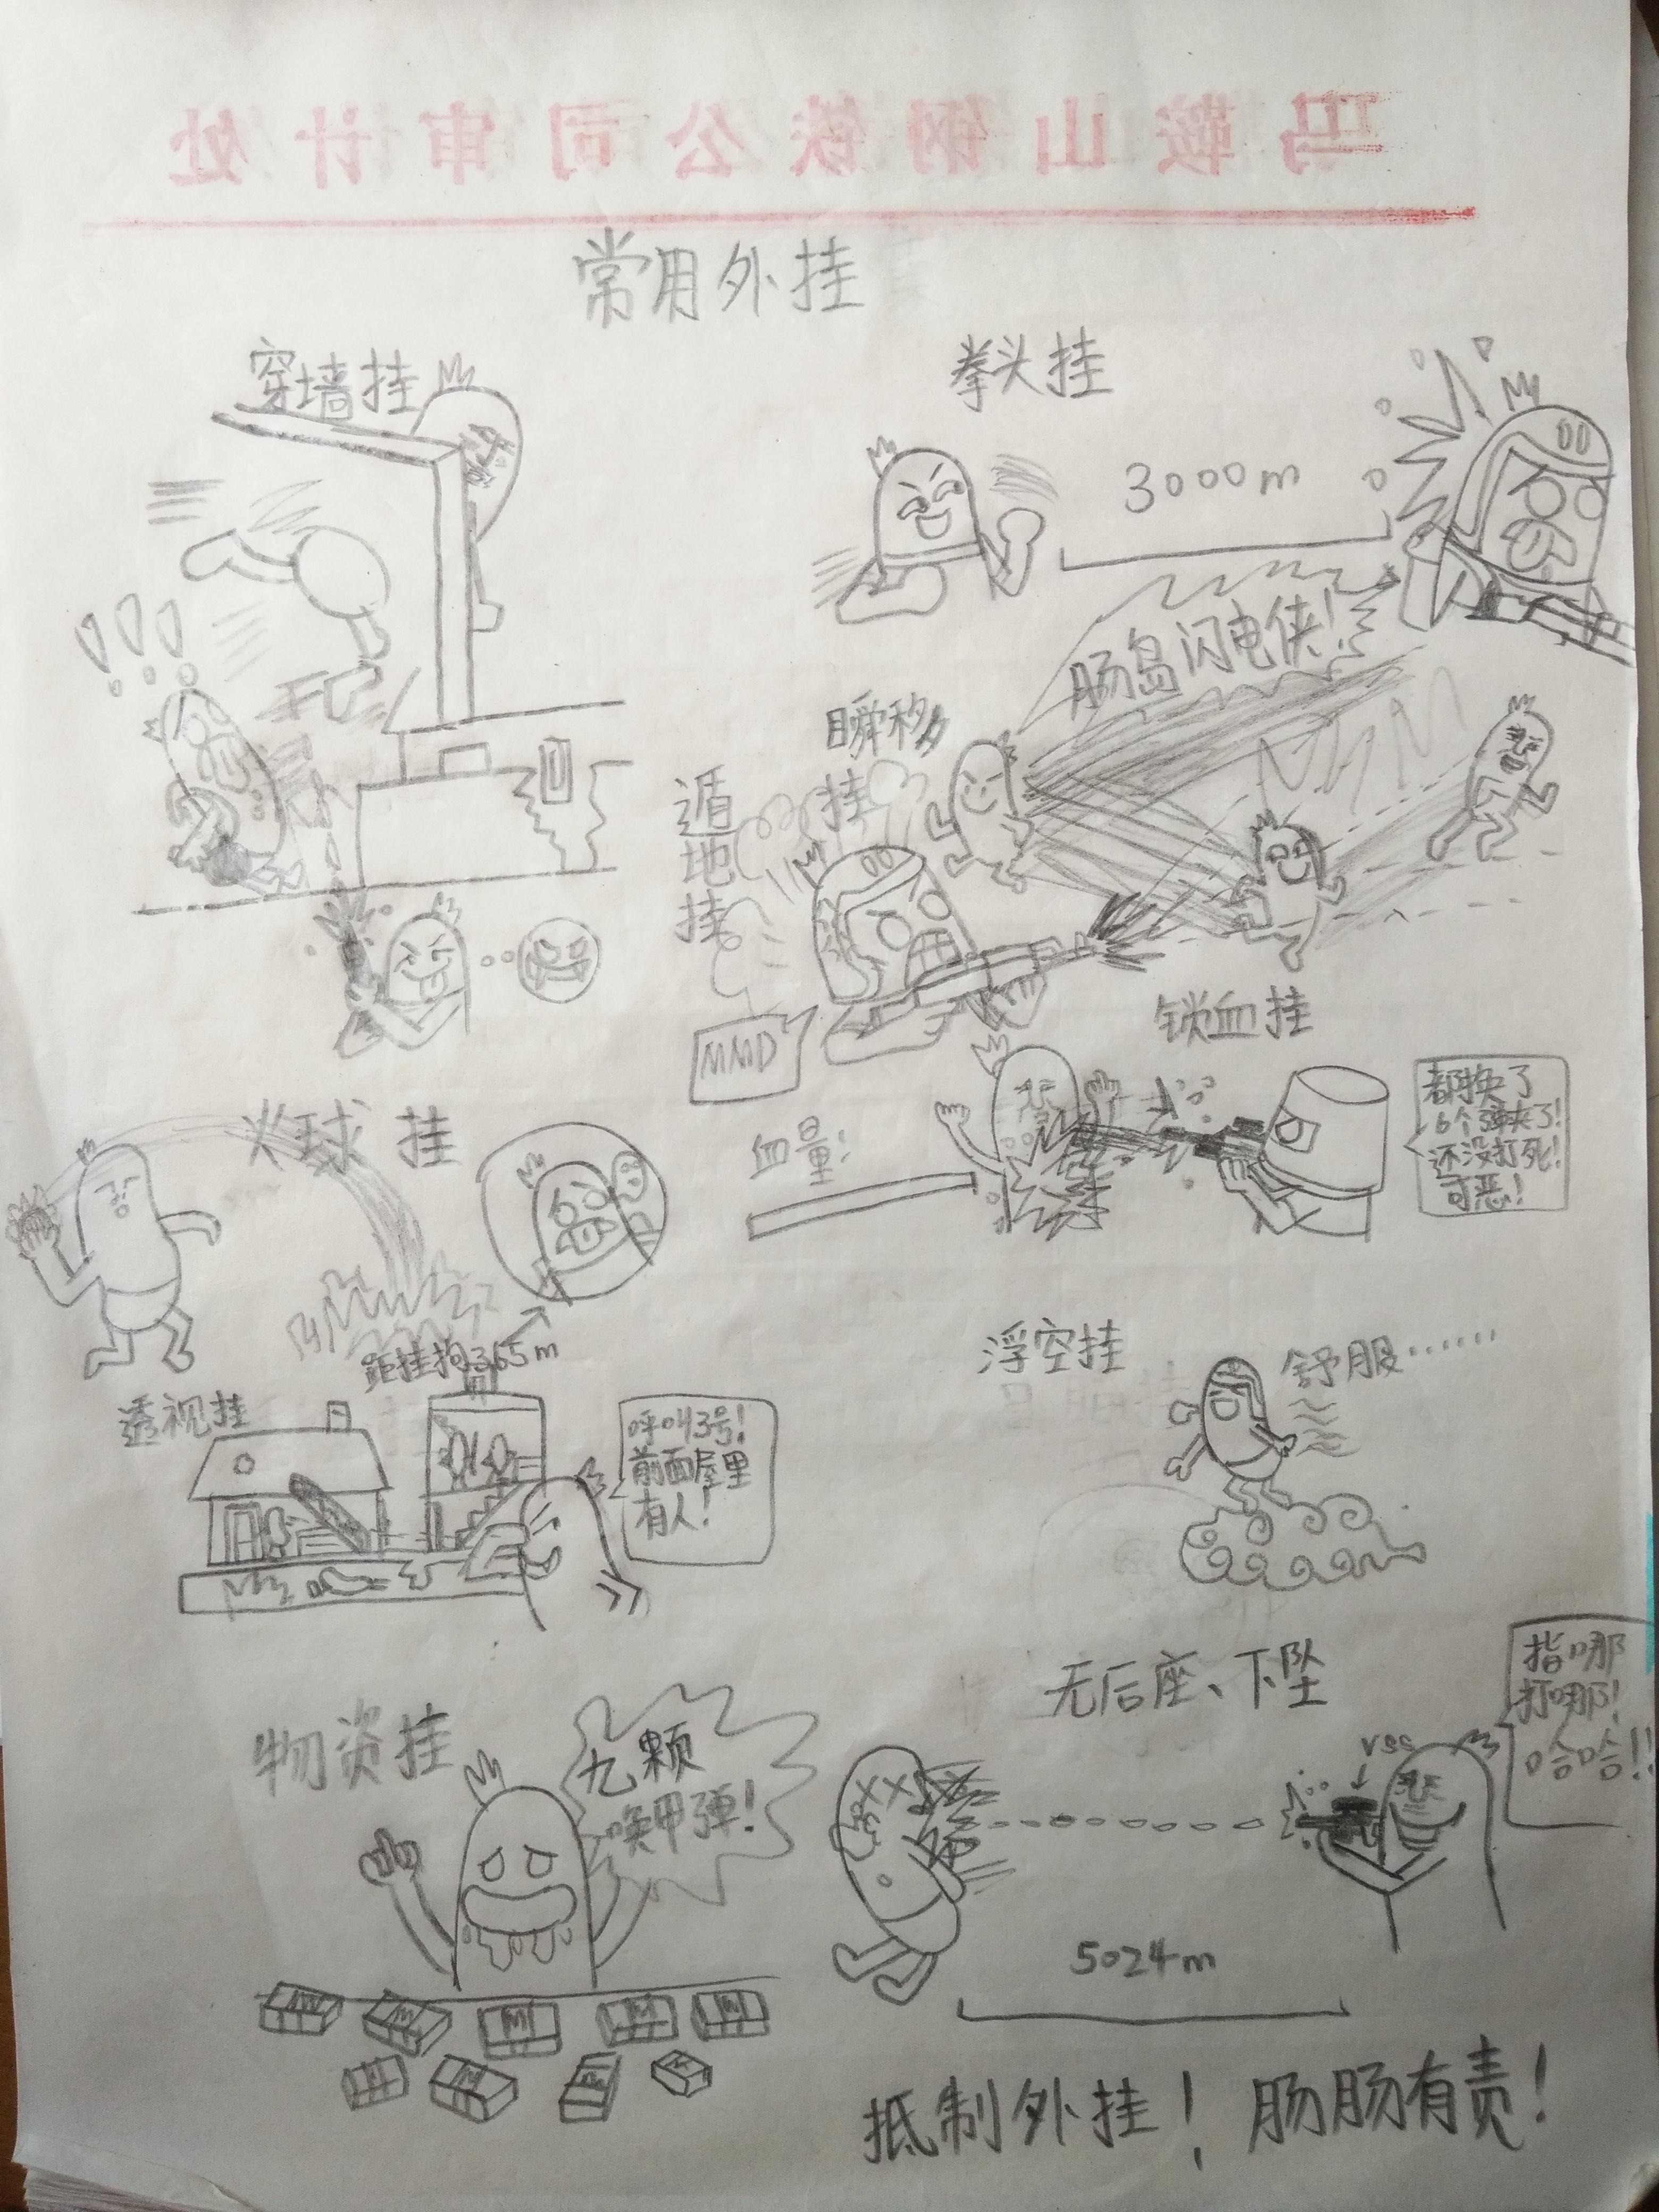 马鞍山钢铁公司审计处
常用外挂
穿墙挂
拳头挂
3000m
肠岛闪电侠!
瞬移
挂
遁
地
挂
MMD
锁血挂
血量:
都换了
6个弹夹了!
还没打死!
可恶!
火球挂
距挂狗365m
透视挂
呼叫3号!
前面屋里
有人!
浮空挂
舒服……
物资挂
九颗
唤甲弹!
无后座、下坠
指哪
打哪!
哈哈!!
vss
5024m
抵制外挂!肠肠有责!